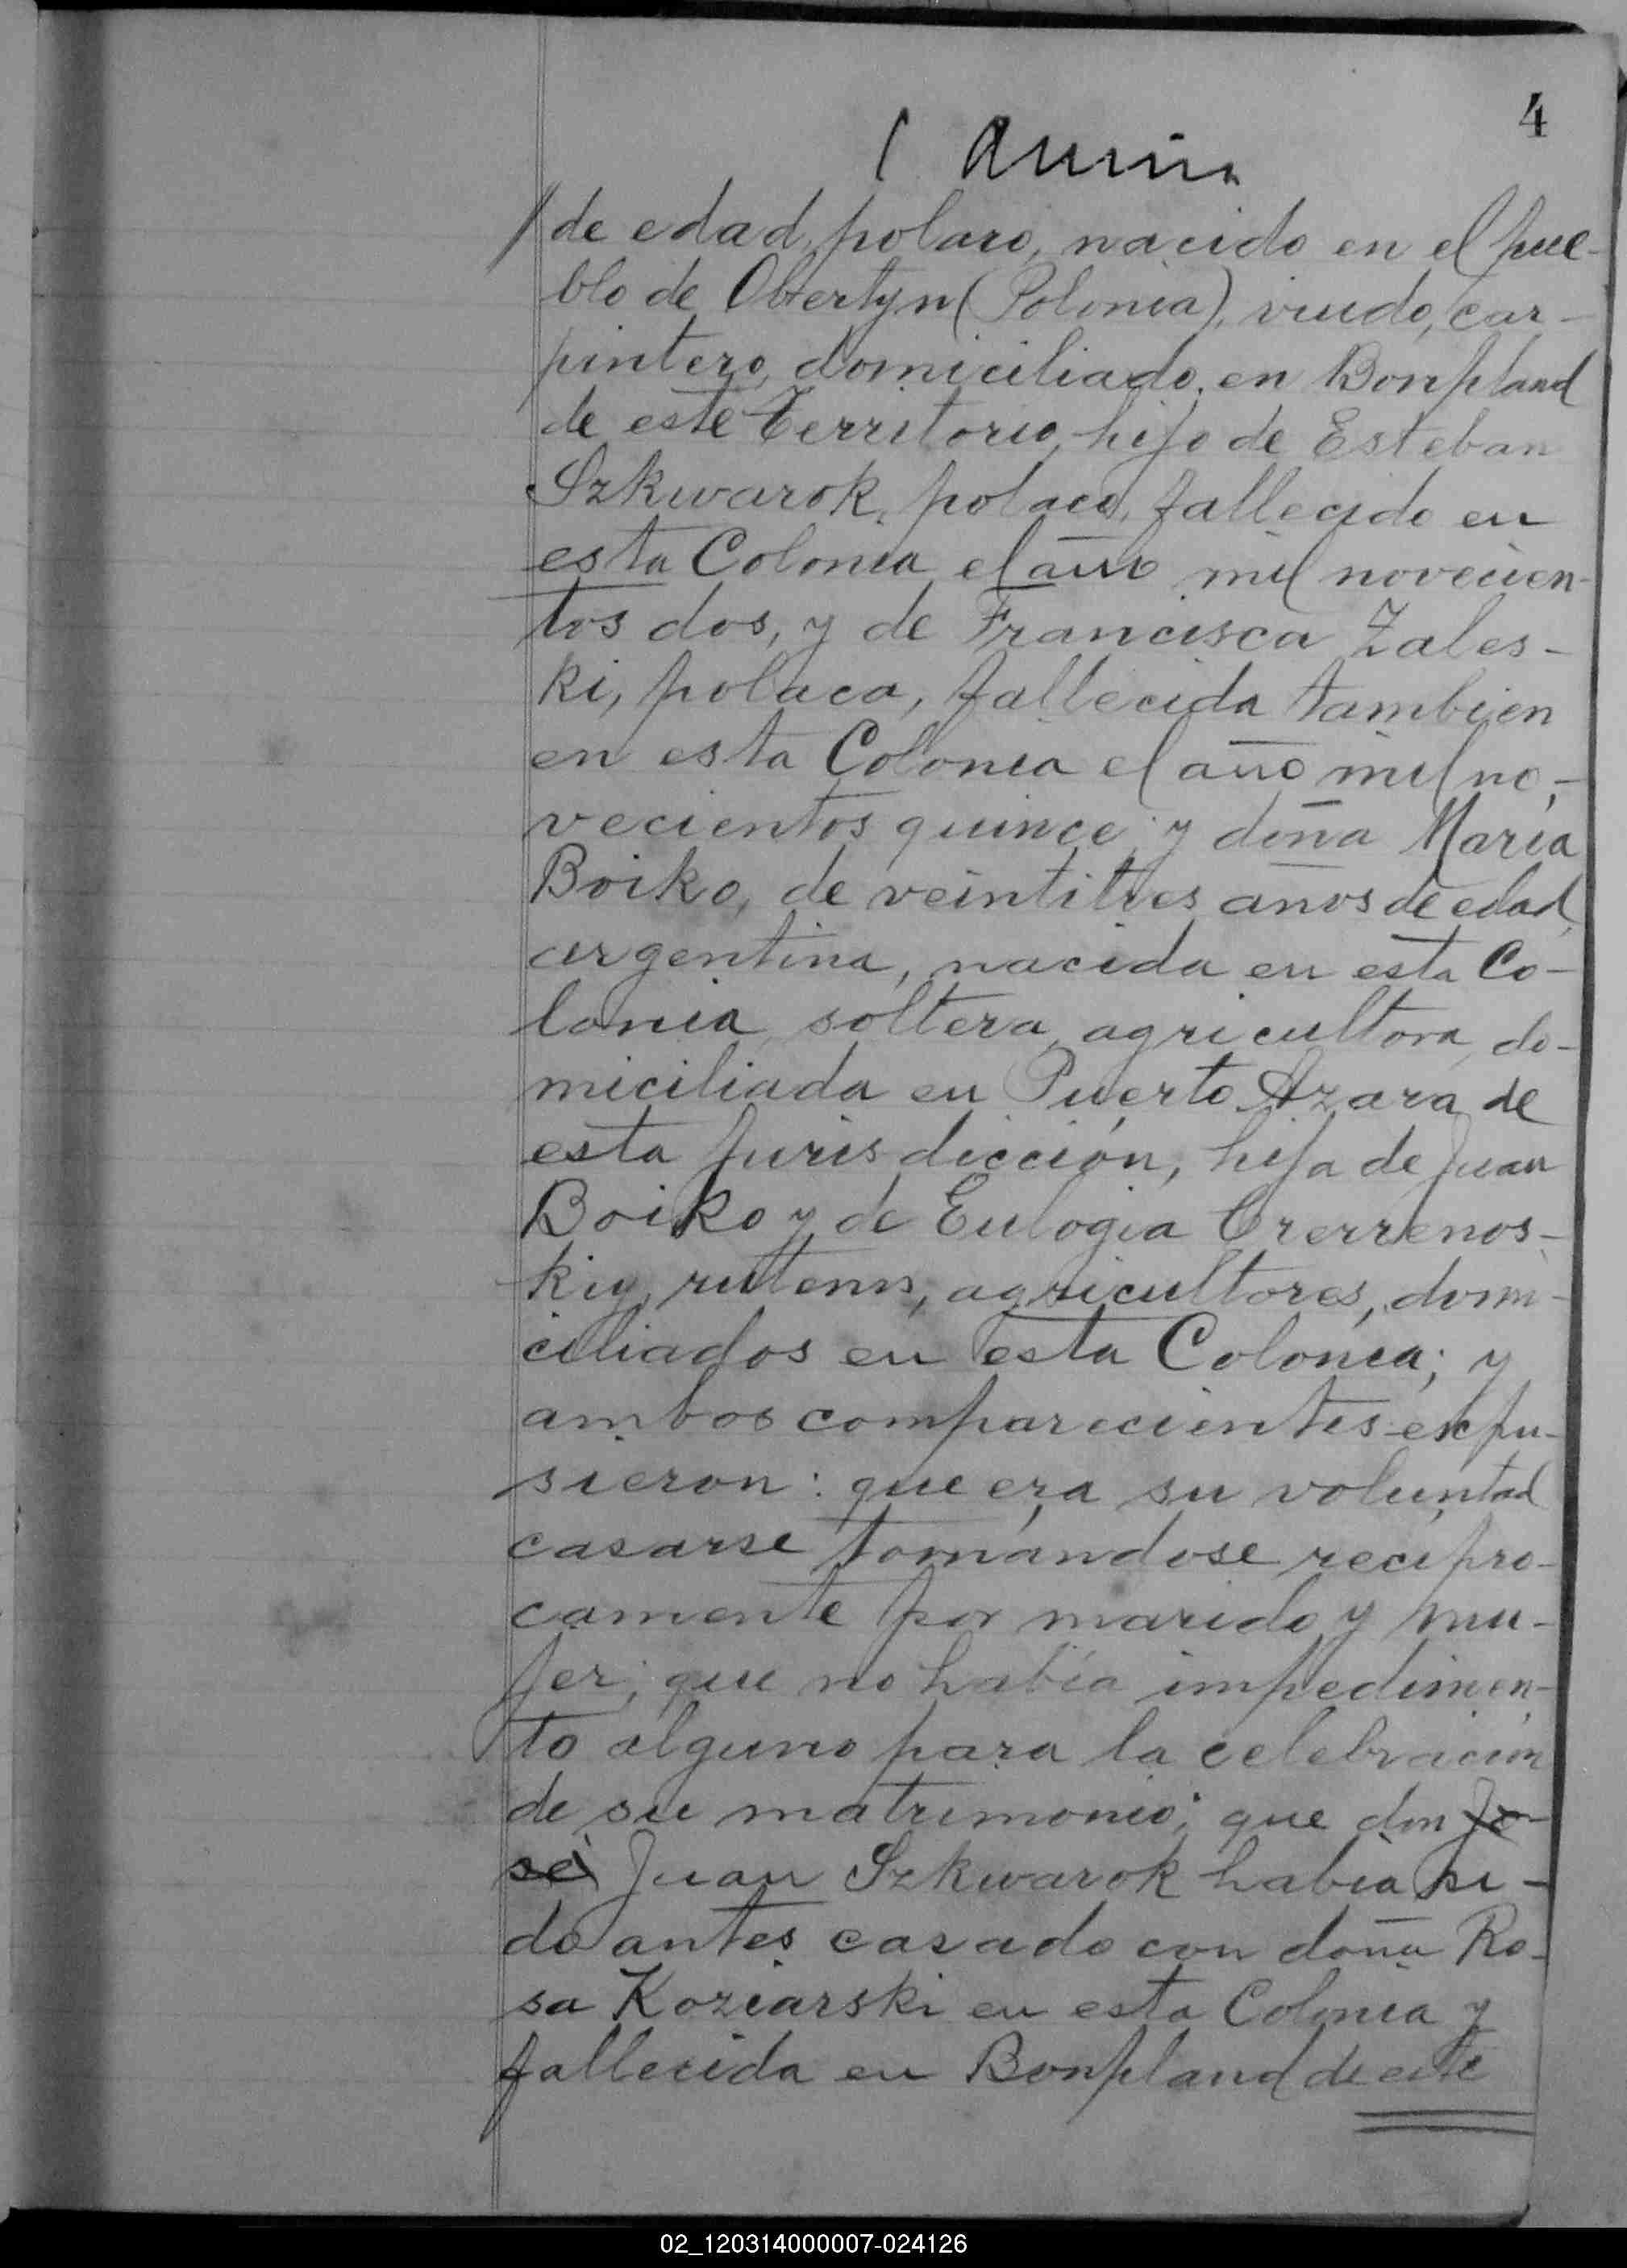 4
de edad, polaco, nacido en el pue-
blo de Obertyn (Polonia), viudo, car-
pintero, domiciliado en Bonpland
de este Territorio, hijo de Esteban
Szkwarok, polaco, fallecido en
esta Colonia el año mil novecien-
tos dos, y de Francisca Zales-
ki, polaca, fallecida tambien
en esta Colonia el año mil no-
vecientos quince y doña María
Boiko, de veintitres años de edad,
argentina, nacida en esta Co-
lonia, soltera, agricultora, do-
miciliada en Puerto Azara de
esta jurisdicción, hija de Juan
Boiko y de Eulogia
rutenos, agricultores, domi-
ciliados en esta Colonia; y
ambos comparecientes expu-
sieron: que era su voluntad
casarse tomándose recipro-
camente por marido y mu-
jer; que no había impedimen-
to alguno para la celebración
de su matrimonio; que don Jo-
sé Juan Szkwarok había si-
do antes casado con doña Ro-
sa Koziarski en esta Colonia y
fallecida en Bonpland de este
02_120314000007-024126